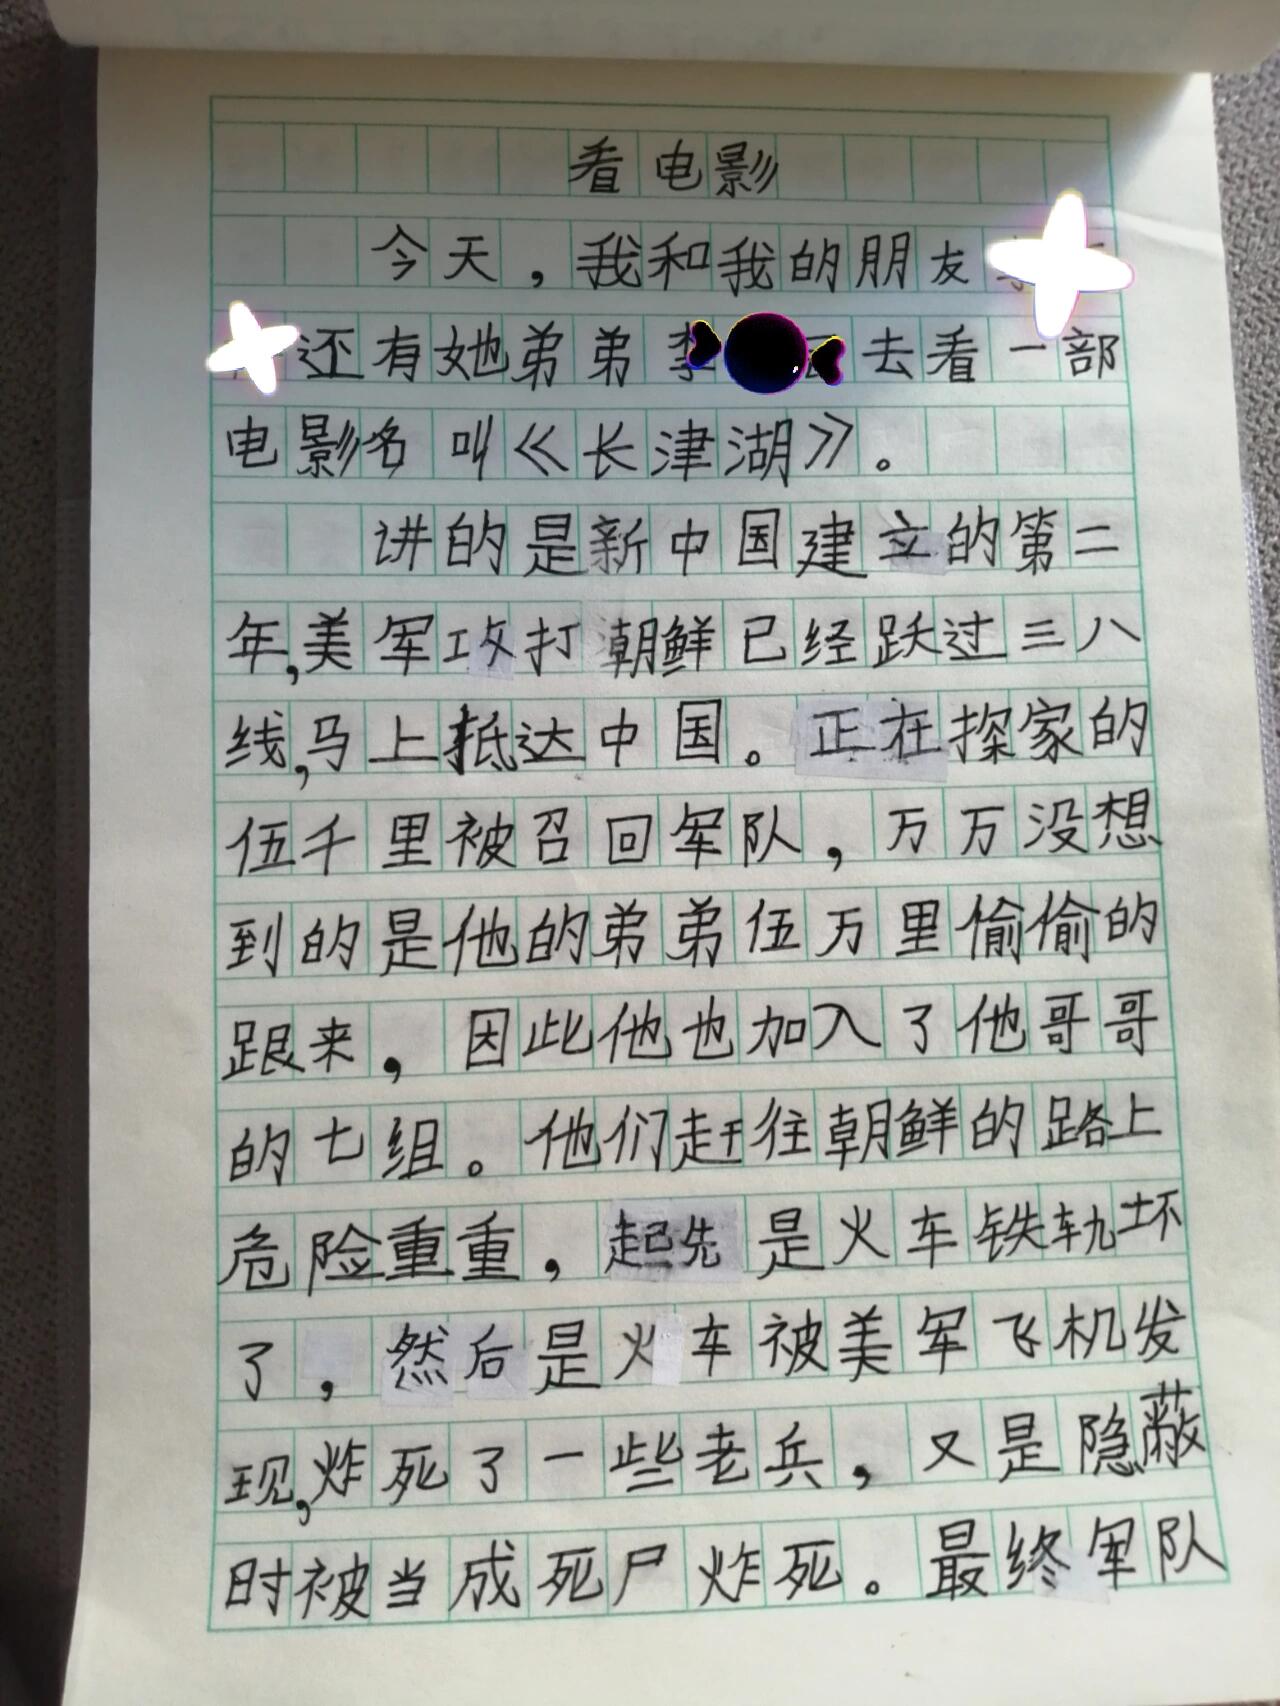 看电影
今天，我和我的朋友
还有她弟弟李去看一部
电影名叫《长津湖》。
讲的是新中国建立的第二
年,美军攻打朝鲜已经跃过三八
线,马上抵达中国。正在探家的
伍千里被召回军队，万万没想
到的是他的弟弟伍万里偷偷的
跟来，因此他也加入了他哥哥
的七组。他们赶往朝鲜的路上
危险重重，起先是火车铁轨坏
了，然后是火车被美军飞机发
现,炸死了一些老兵，又是隐蔽
时被当成死尸炸死。最终军队